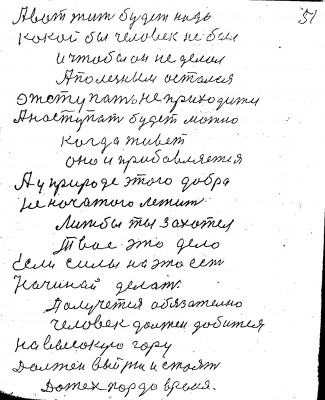 51
А вот жит будет надь
Какой бы человек не был
и чтобы он не делал
А полезным остался
Отступать не приходити
А наступат будет можно
когда живет
оно и прибовляется
А у природе этого добра
не початого летит
Лишбы ты захотел
Твое это дело
Если силы на это есть
Начинай делать
Получется обязательно
человек должен добится
На высокую гору
должен выйти и стоят
До тех пор до время.